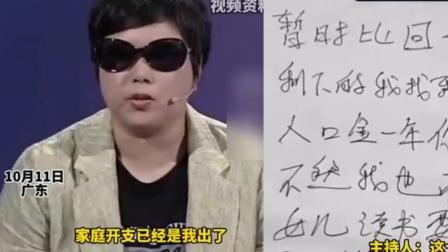 视频资料
暂时比回
剩下的我找
人口金一年
不然我也
女儿读书
10月11日
广东
家庭开支已经是我出了
主持人：这